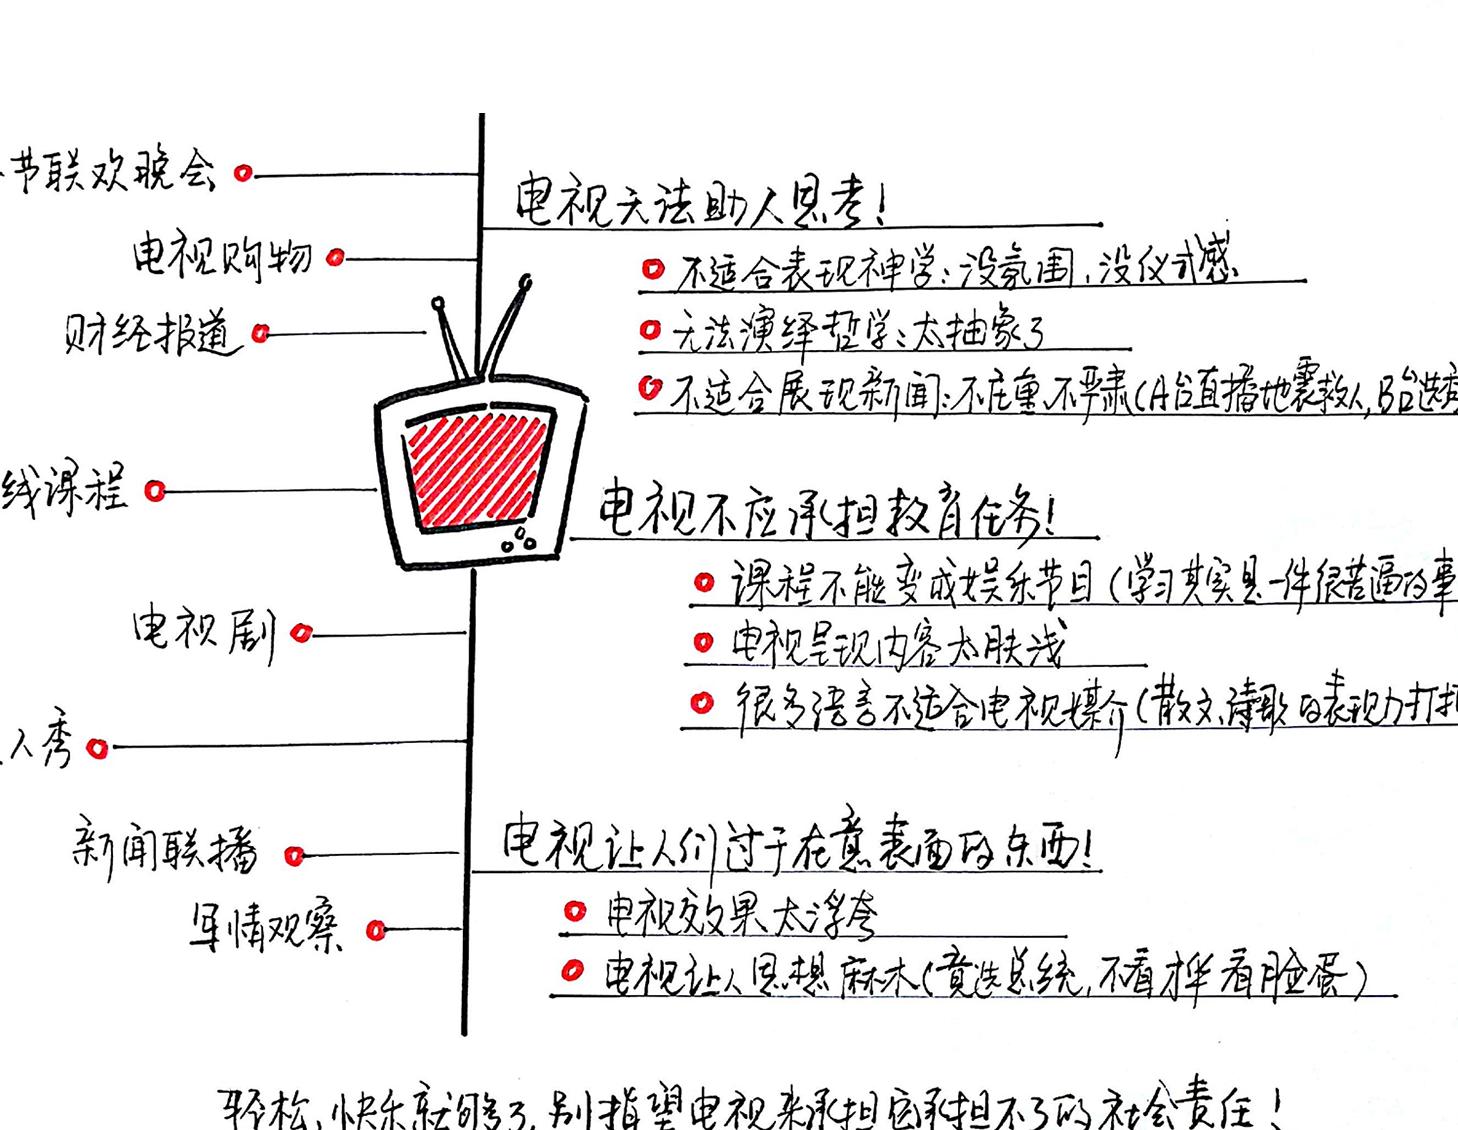 节联欢晚会
电视购物
财经报道
线课程
电视剧
人秀
新闻联播
军情观察
电视无法助人思考！
不适合表现神学：没氛围，没仪式感
无法演绎哲学：太抽象了
不适合展现新闻：不庄重、不严肃（A台直播地震救人，B台选秀
电视不应承担教育任务！
课程不能变成娱乐节目（学习其实是一件很苦逼的事
电视呈现内容太肤浅
很多语言不适合电视媒介（散文、诗歌的表现力打折
电视让人们过于在意表面的东西！
电视效果太浮夸
电视让人思想麻木（竟选总统，不看才华看脸蛋）
轻松、快乐就够了，别指望电视来承担它承担不了的社会责任！